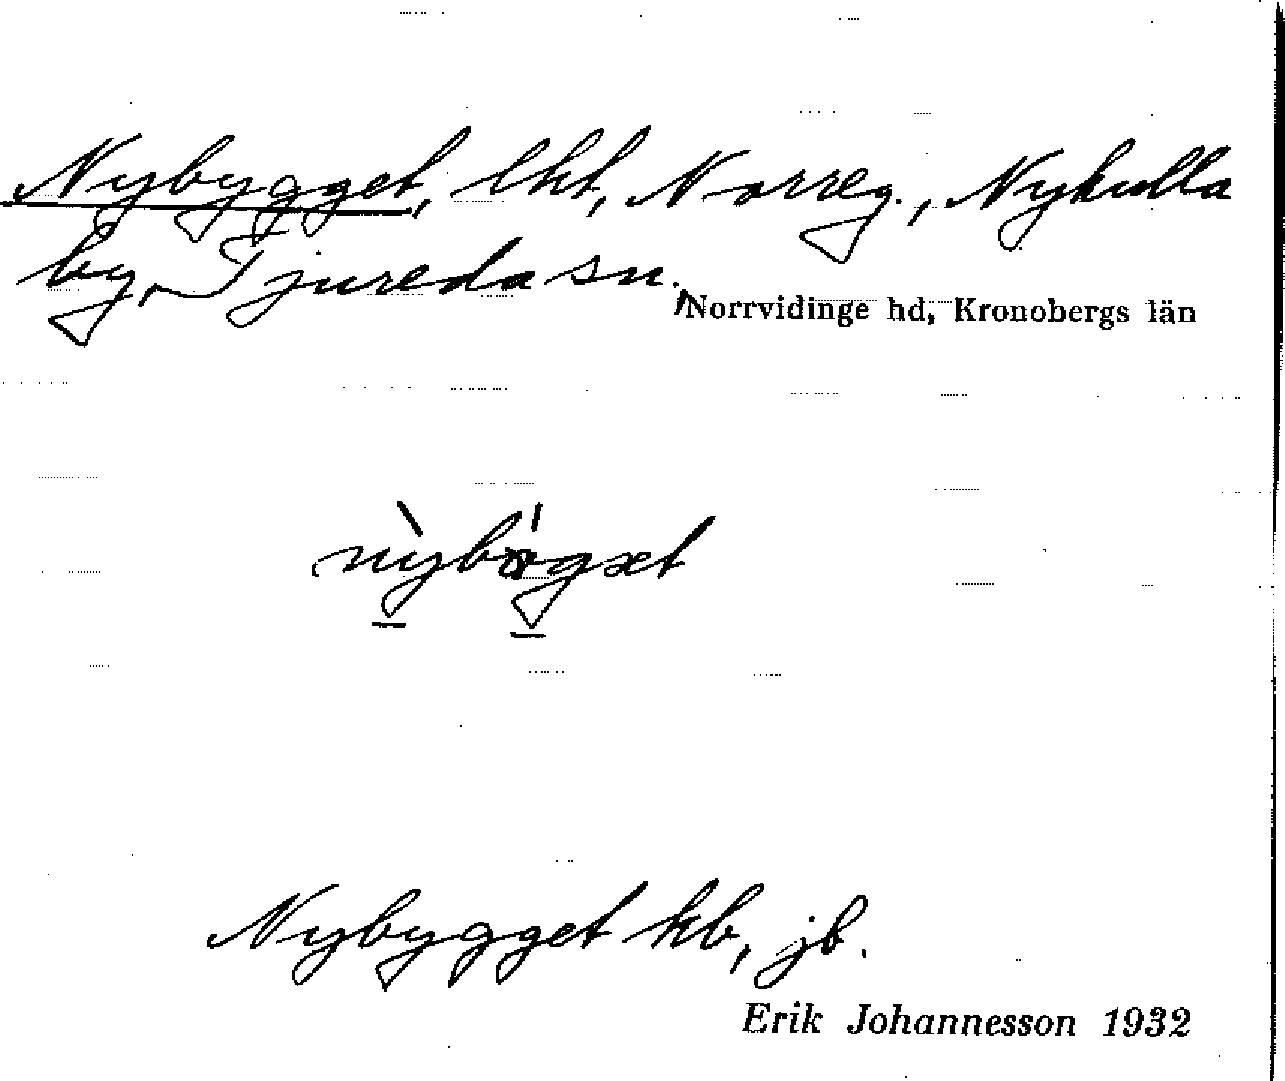 Nybygget, lht, Norreg., Nykulla
by, Tjureda sn.,
Norrvidinge hd, Kronobergs län
Nybygget kb, jb.
Erik Johannesson 1932